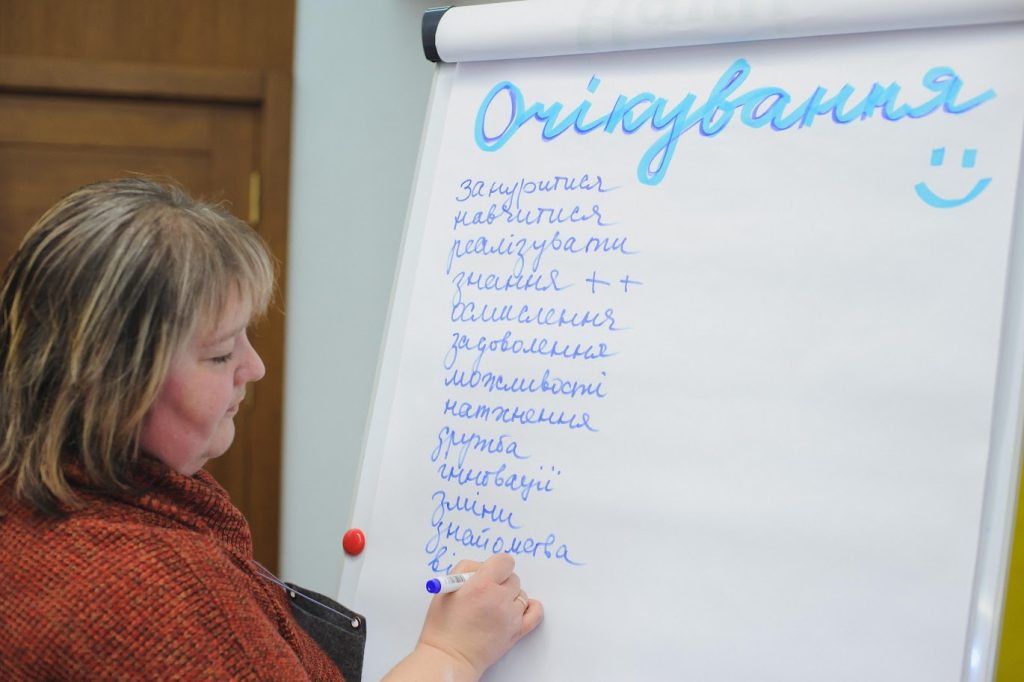 Очікування
зануритися
навчитися
реалізувати
знання ++
осмислення
задоволення
можливості
натхнення
дружба
інновації
зміни
знайомства
ві